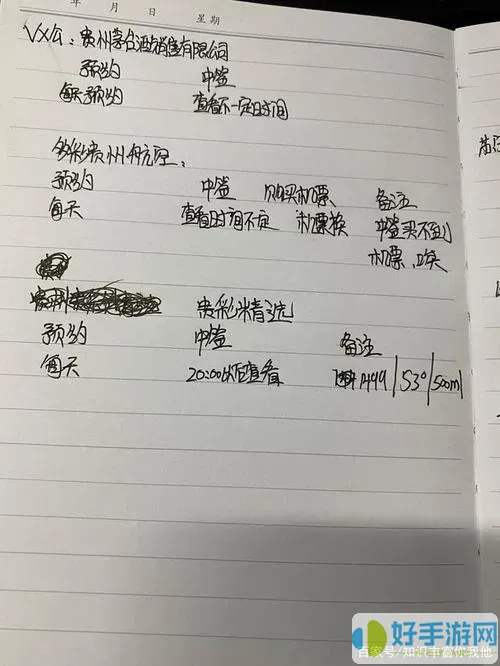 年 月 日 星期
VX公:贵州茅台酒销售有限公司
预约 中签
每天预约 查看不一定时间
多彩贵州航空:
预约 中签 购买机票 备注
每天 查看时间不定 机票换 中签买不到
机票、唉
贵彩精选
预约 中签 备注
每天 20:00以后查看 1499/53°/500ml
好手游网
百家号/知识丰富你我他